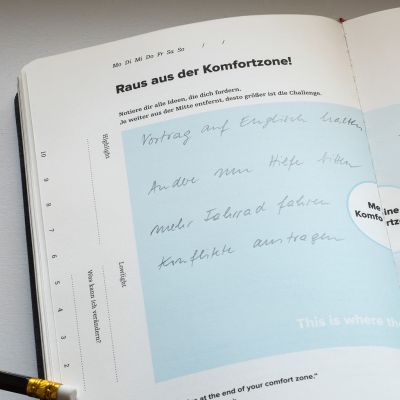 Mo Di Mi Do Fr Sa So / /
Raus aus der Komfortzone!
Notiere dir alle Ideen, die dich fordern.
Je weiter aus der Mitte entfernt, desto größer ist die Challenge.
Highlight
Vortrag auf Englisch halten
Andere um Hilfe bitten
mehr Fahrrad fahren
Konflikte austragen
Me ine
Komfo rtz
10
9
8
7
6
5
4
3
2
Lowlight
Was kann ich verändern?
This is where th
at the end of your comfort zone."